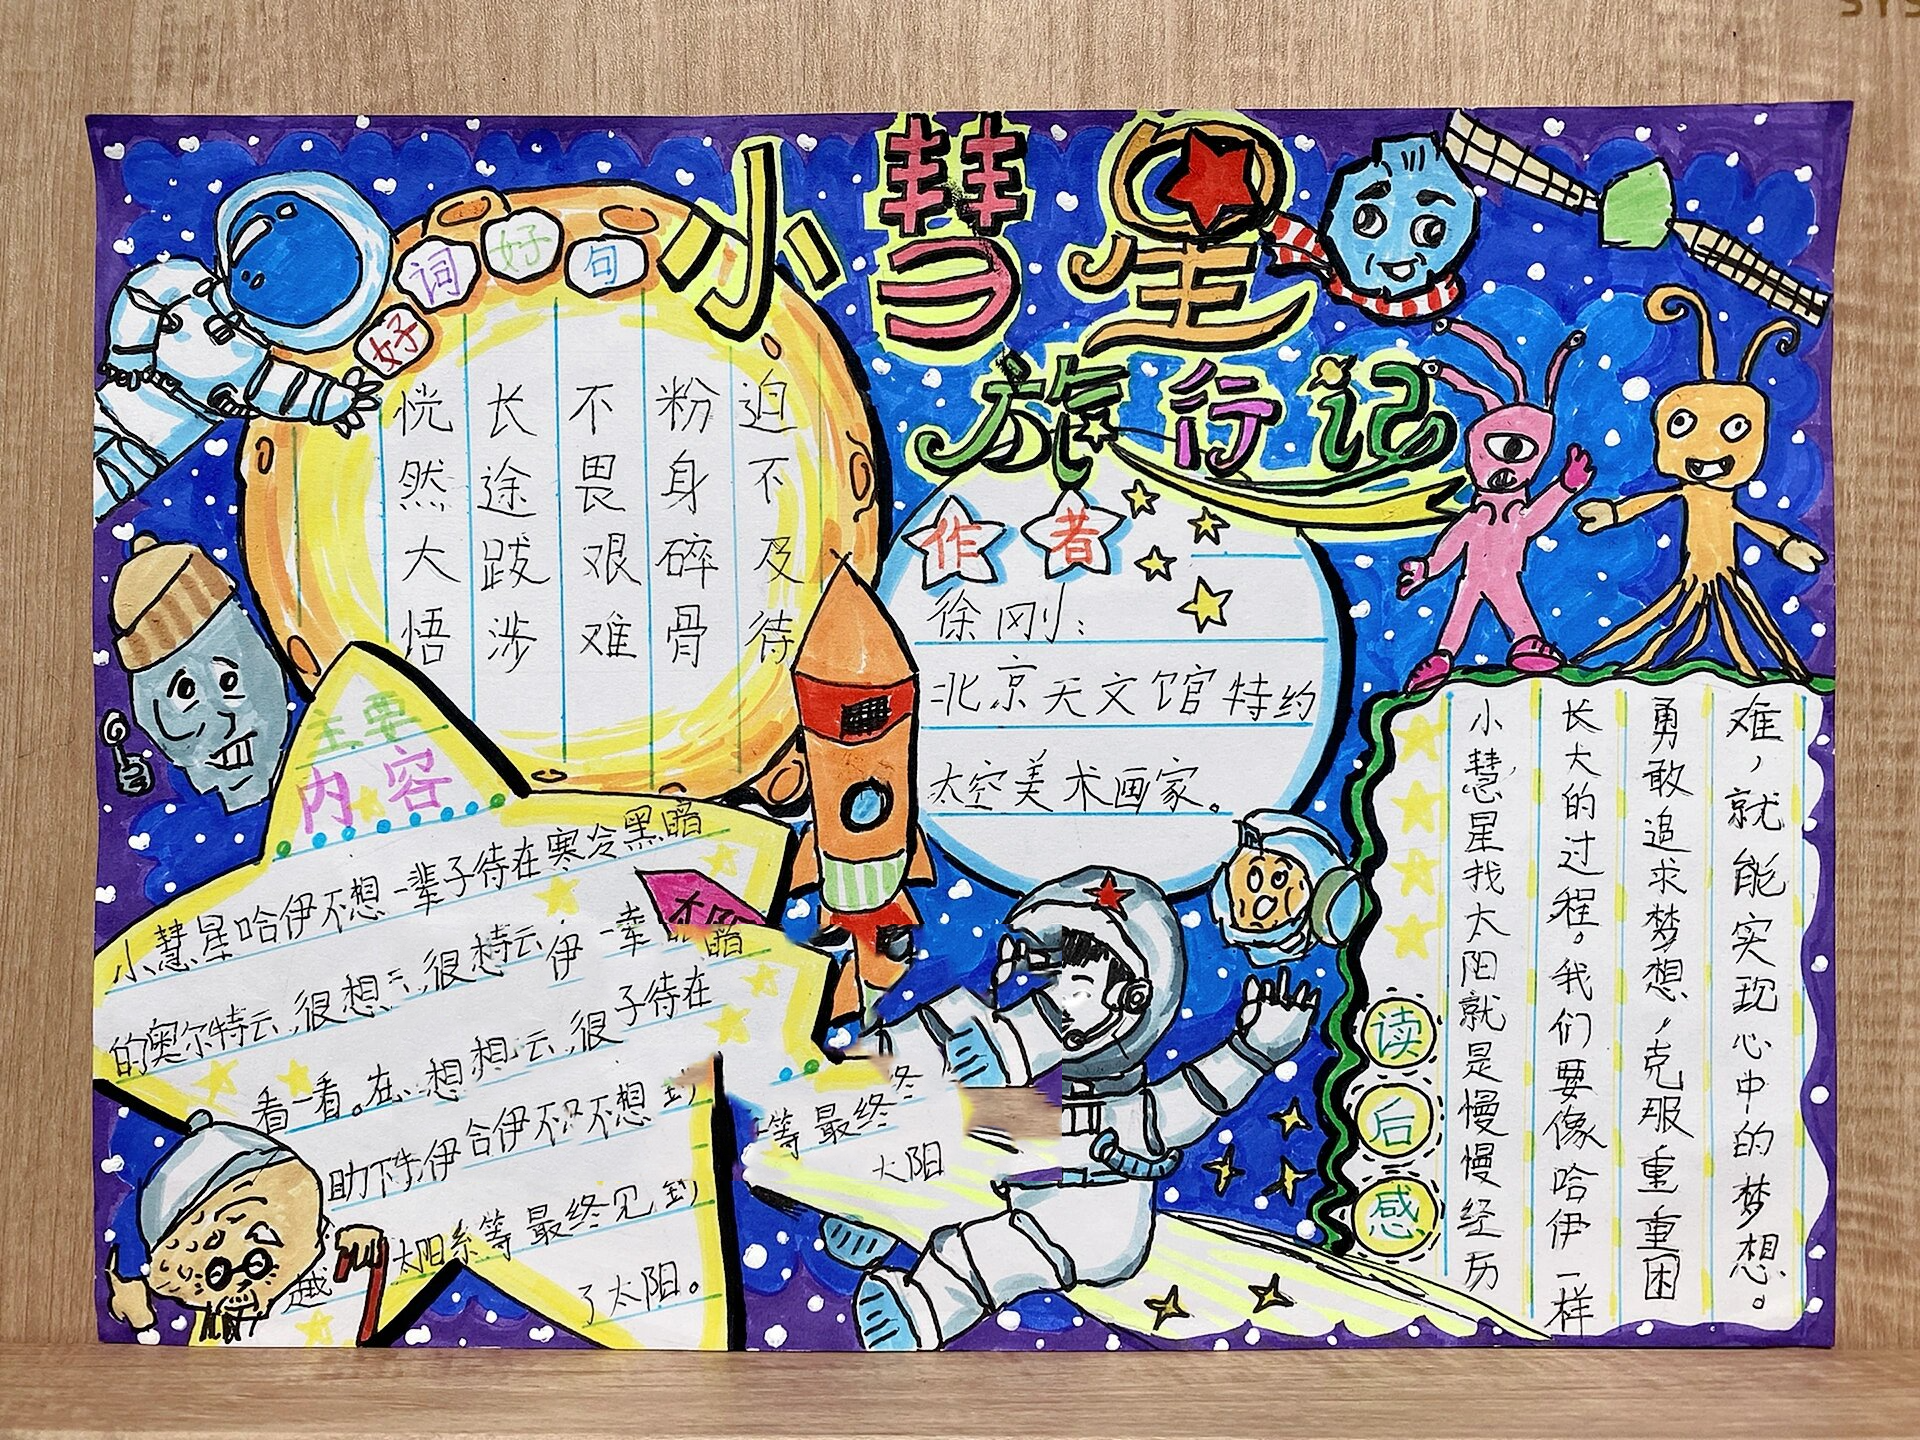 小彗星
旅行记
好词好句
恍然大悟
长途跋涉
不畏艰难
粉身碎骨
迫不及待
作者
徐刚：
北京天文馆特约
太空美术画家。
主要
内容
小慧星哈伊不想一辈子待在寒冷黑暗
的奥尔特云,很想
看一看。在
助下
太阳系等最终见到
了太阳。
等最终
太阳
越
读后感
小慧星找太阳就是慢慢经历
长大的过程。我们要像哈伊一样
勇敢追求梦想,克服重重困
难,就能实现心中的梦想。
SYS